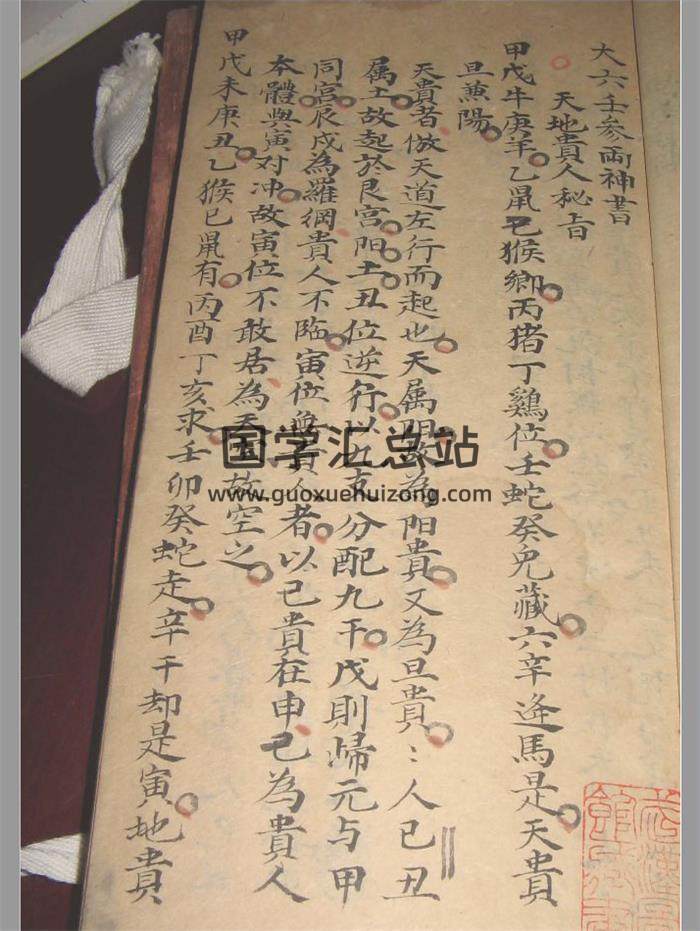 大六壬参兩神書
天地貴人秘旨
甲戊牛庚羊乙鼠己猴鄉丙猪丁鷄位壬蛇癸兎藏六辛逢馬是天貴
旦兼陽
天貴者倣天道左行而起也天属陽故為陽貴又為旦貴:人己丑
属土故起於艮宮陽土丑位逆行以九支分配九干戊則歸元与甲
同宮辰戌為羅網貴人不臨寅位無貴人者以己貴在申己為貴人
本體與寅对冲故寅位不敢居為天空故空之
甲戊未庚丑乙猴己鼠有丙酉丁亥求壬卯癸蛇走辛干却是寅地貴
国学汇总站
www.guoxuehuizong.com